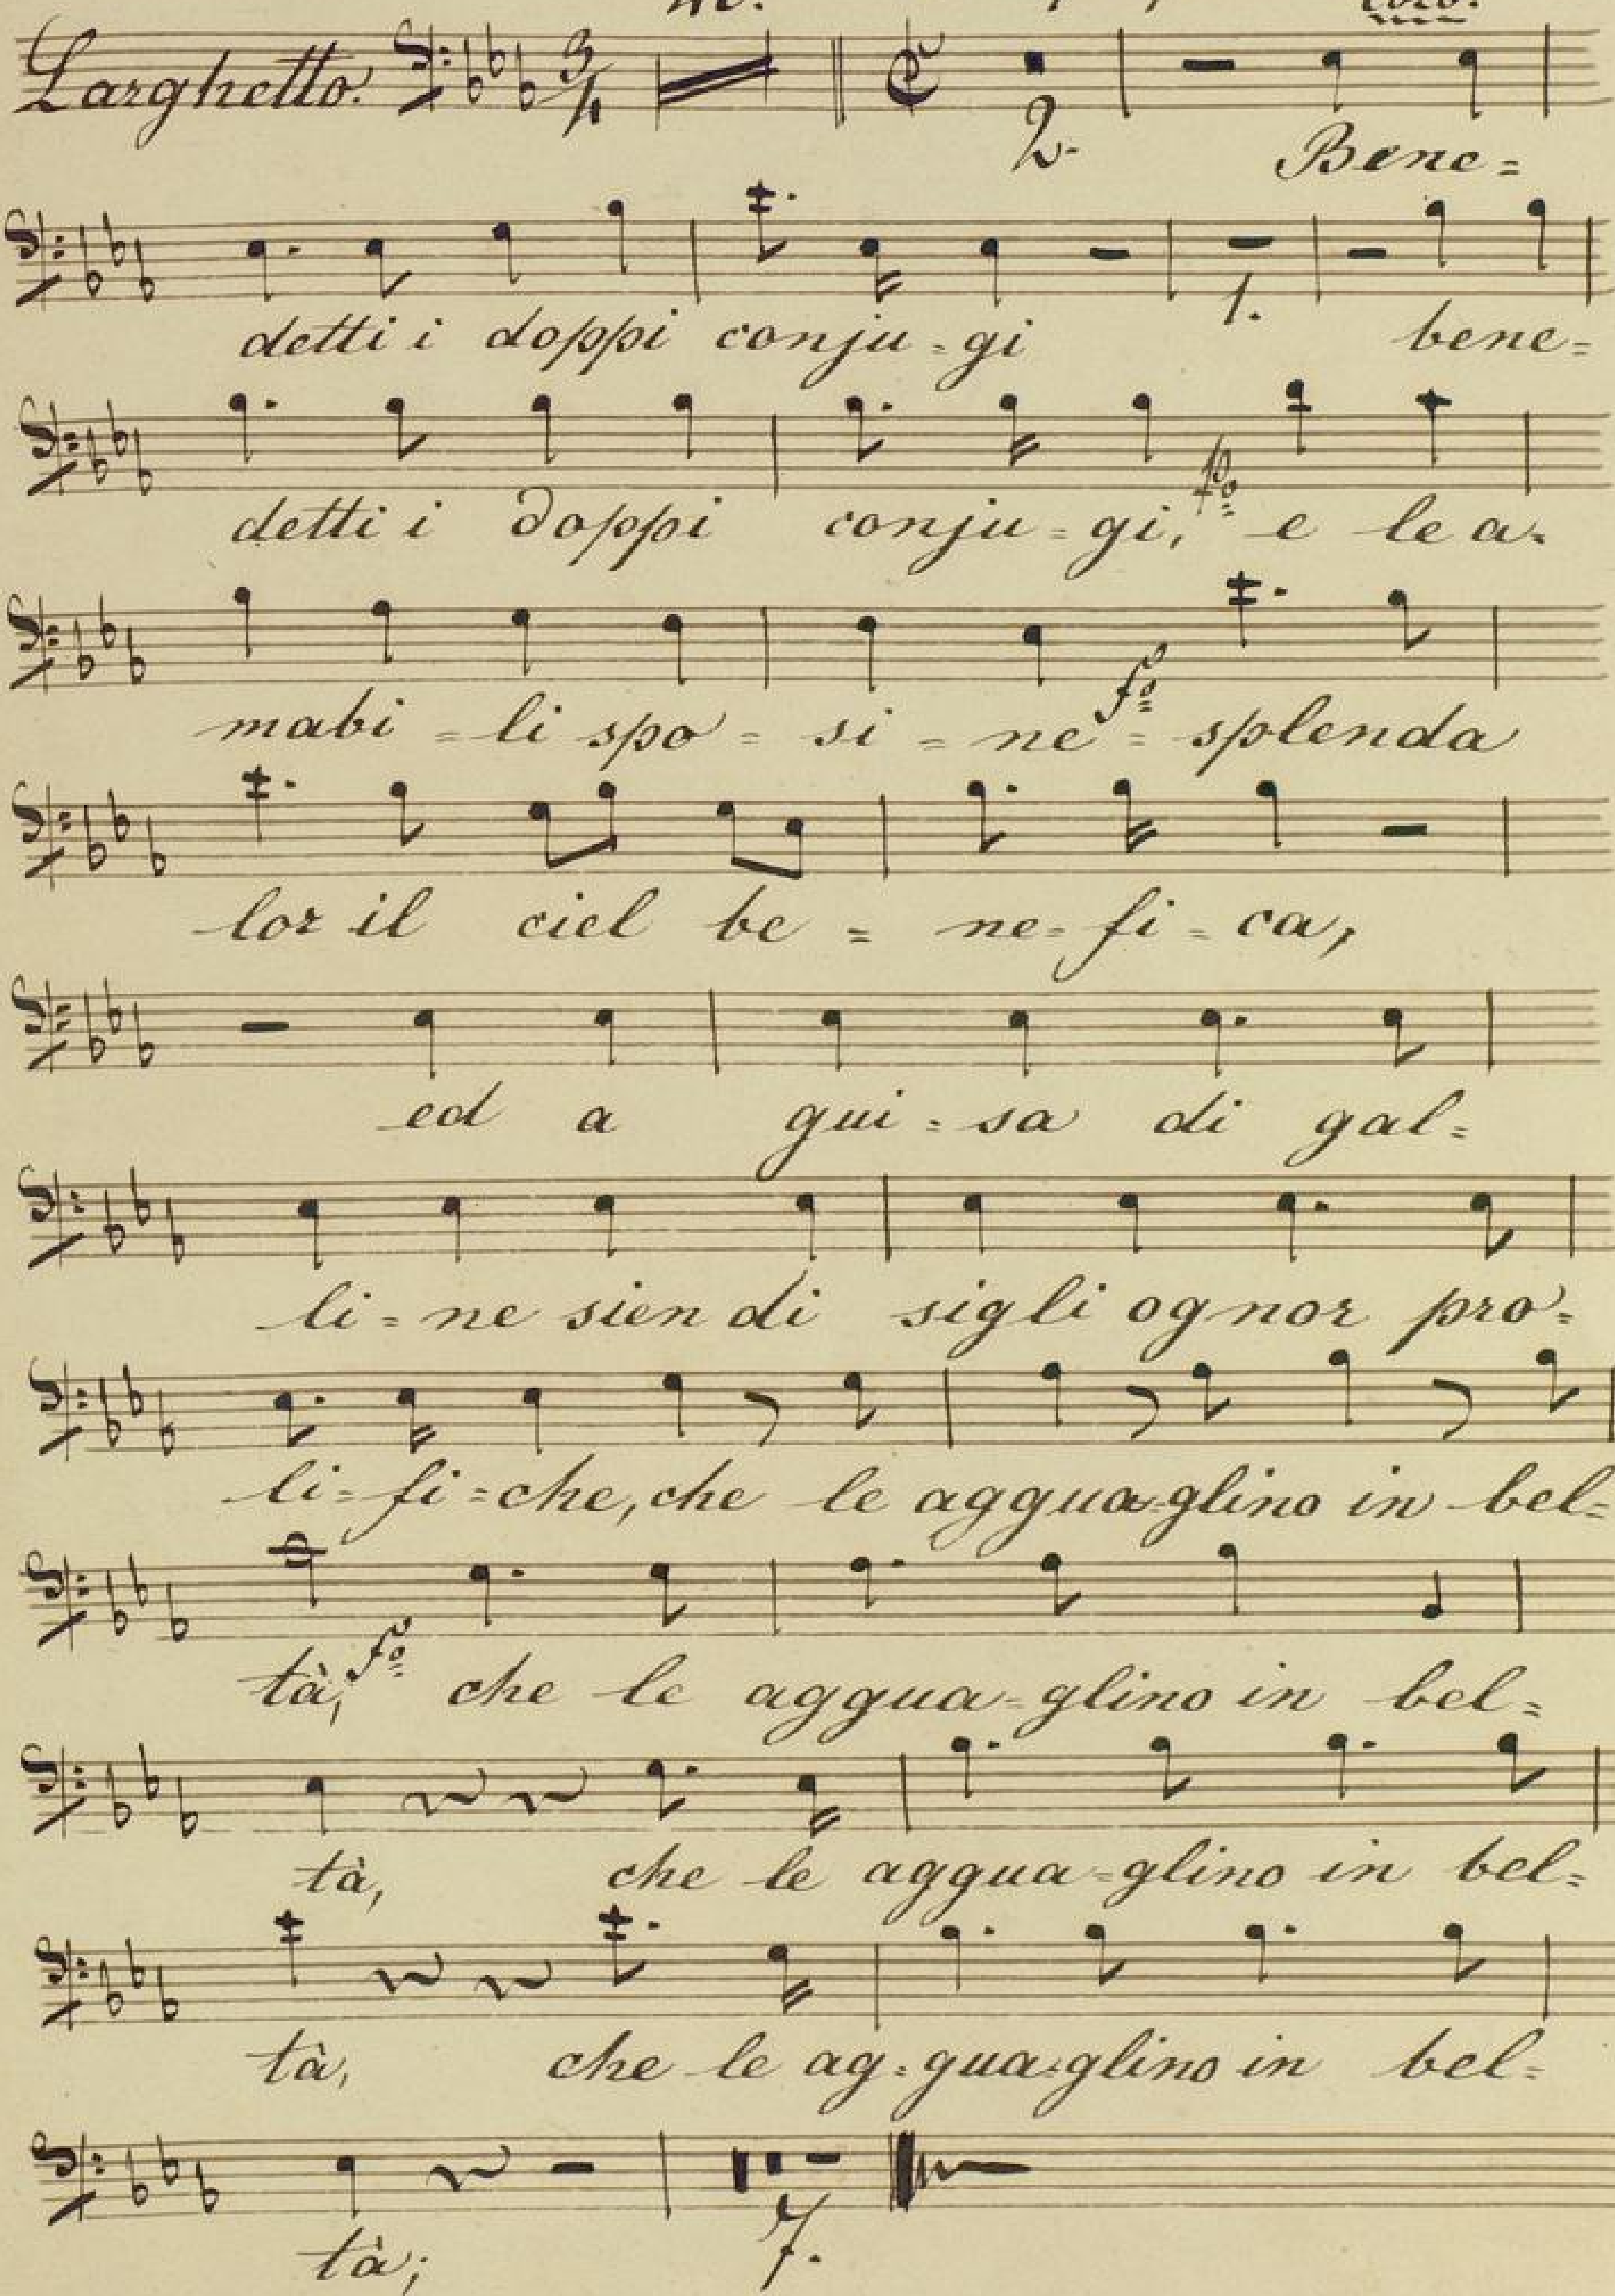 Larghetto. 3/4 2. Bene=
detti i doppi conju=gi 1. bene=
detti i doppi conju=gi, po= e le a=
mabi=li spo=si=ne= fo= splenda
lor il ciel be=ne=fi=ca,
ed a gui=sa di gal=
li=ne sien di sigli ognor pro=
li=fi=che, che le aggua=glino in bel=
tà, fo= che le aggua=glino in bel=
tà, che le aggua=glino in bel=
tà, che le ag=gua=glino in bel=
tà; 7.